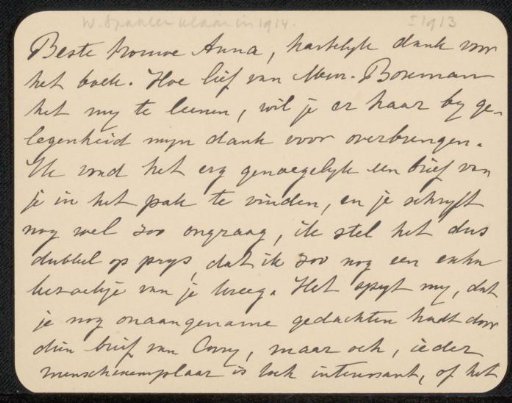 I 1913
Beste trouwe Anna, hartelyk dank voor
het boek. Hoe lief van Mevr. Bosman
het my te leenen, wil je er haar by ge-
legenheid myn dank voor overbrengen.
Ik vond het erg genoegelyk een brief van
je in het pak te vinden, en je schryft
nog wel zoo ongraag, ik stel het dus
dubbel op prys, dat ik zoo nog een extra
bezoekje van je kreeg. Het spyt my, dat
je nog onaangename gedachten hadt door
dien brief van Corry, maar och, ieder
menschenexemplaar is toch interessant, of het